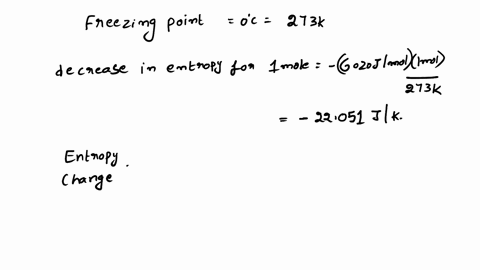 Freezing point = 0°C = 273k
decrease in entropy for 1 mole = -(6020J/mol)(1mol)
273K
= - 22.051 J/k.
Entropy
Change